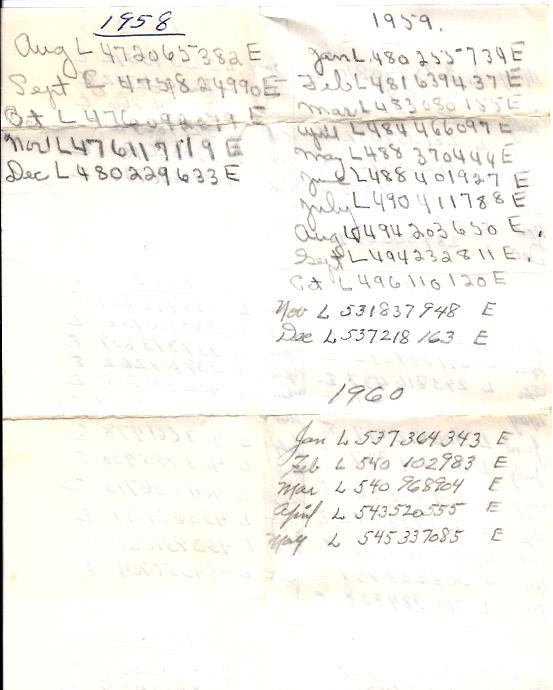 1958
Aug L 472065382 E
Sept L 475824990 E
Oct L
Nov L 476119119 E
Dec L 480229633 E
1959.
Jan L 480255734 E
Feb L 481639437 E
Mar L 483080155 E
April L 484466097 E
May L 488370444 E
June L 488401927 E
July L 490411788 E
Aug L 494203650 E.
Sept L 494232811 E.
Oct L 496110120 E
Nov L 531837948 E
Dec L 537218163 E
1960
Jan L 537364343 E
Feb L 540 102983 E
Mar L 540 968904 E
April L 543520555 E
May L 545337085 E